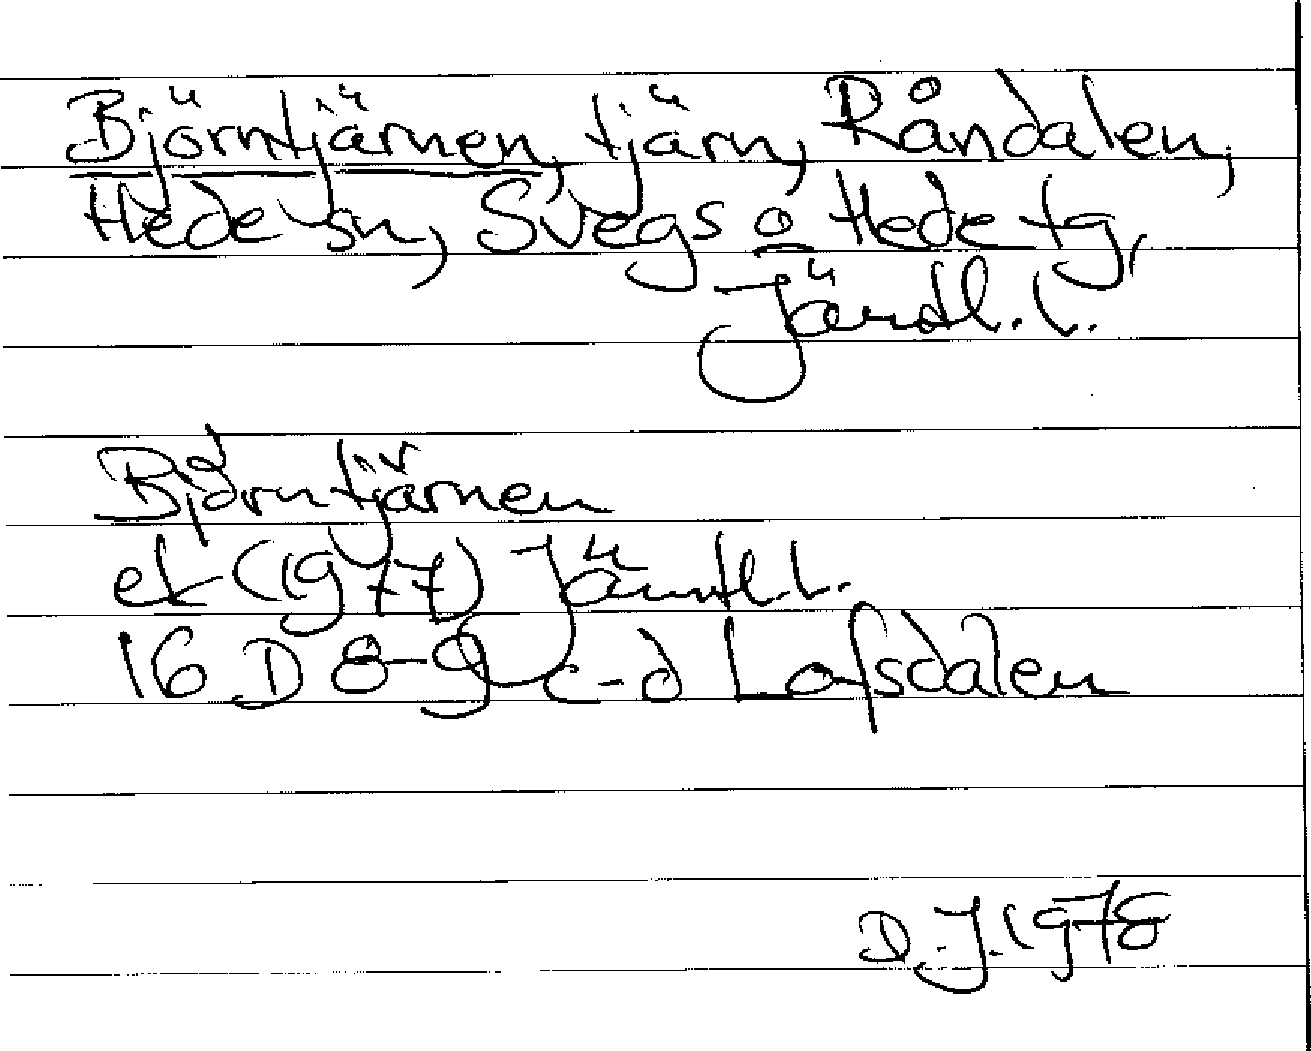 Björntjärnen, tjärn, Råndalen,
Hede sn, Svegs o Hede tg,
Jämtl. l.
Björntjärnen
ek (1977) Jämtl. l.
16 D 8-9 c-d Lofsdalen
D.J. 1978